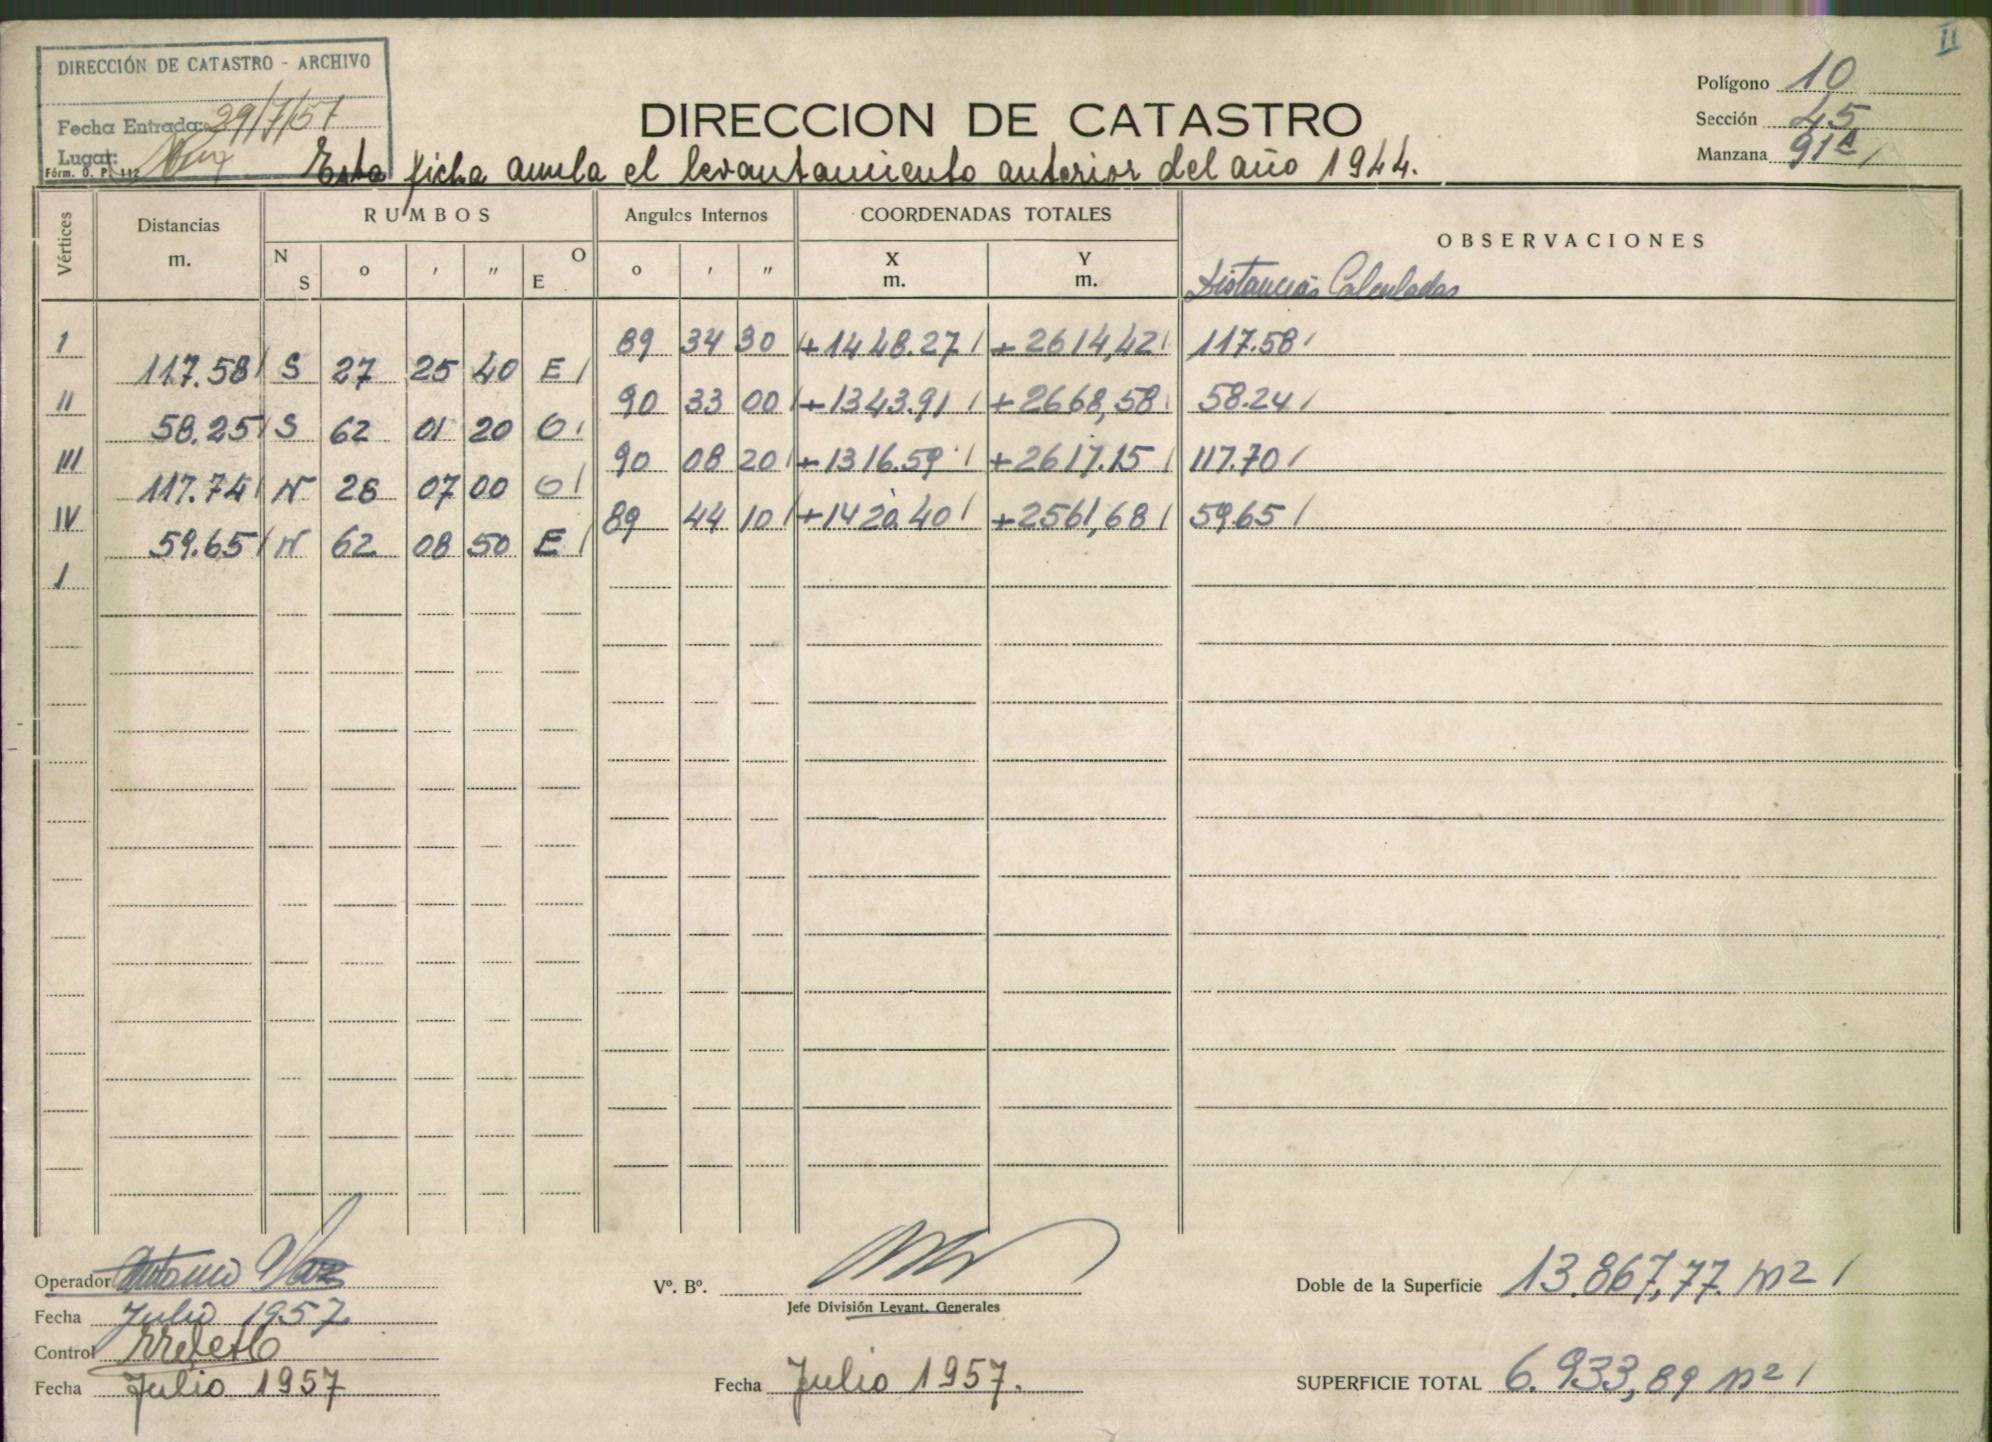 II
DIRECCIÓN DE CATASTRO - ARCHIVO
Fecha Entrada: 29/7/57
Lugar:
Fórm. O. P. 112
DIRECCION DE CATASTRO
Polígono 10
Sección 45
Manzana 91
Esta ficha anula el levantamiento anterior del año 1944.
Vértices Distancias m. RUMBOS Angulos Internos COORDENADAS TOTALES OBSERVACIONES
N S o ' " O E o ' " X m. Y m. Distancias Calculadas
I 89 34 30 +1448.27 +2614,42 117.58
117.58 S 27 25 40 E
II 90 33 00 +1343.91 +2668,58 58.24
58.25 S 62 01 20 O
III 90 08 20 +1316.59 +2617.15 117.70
117.74 N 28 07 00 O
IV 89 44 10 +1420.40 +2561,68 59.65
59.65 N 62 08 50 E
I
Operador Antonio
Fecha Julio 1957
Control
Fecha Julio 1957
Vº. Bº.
Jefe División Levant. Generales
Fecha Julio 1957.
Doble de la Superficie 13.867,77 m2
SUPERFICIE TOTAL 6.933,89 m2